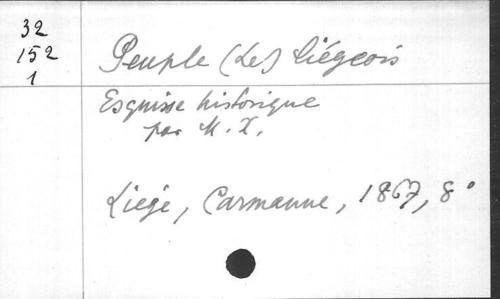 32
152
1
Peuple (Le) liégeois
Esquisse historique
par M. X.
Liège, Carmanne, 1867, 8°